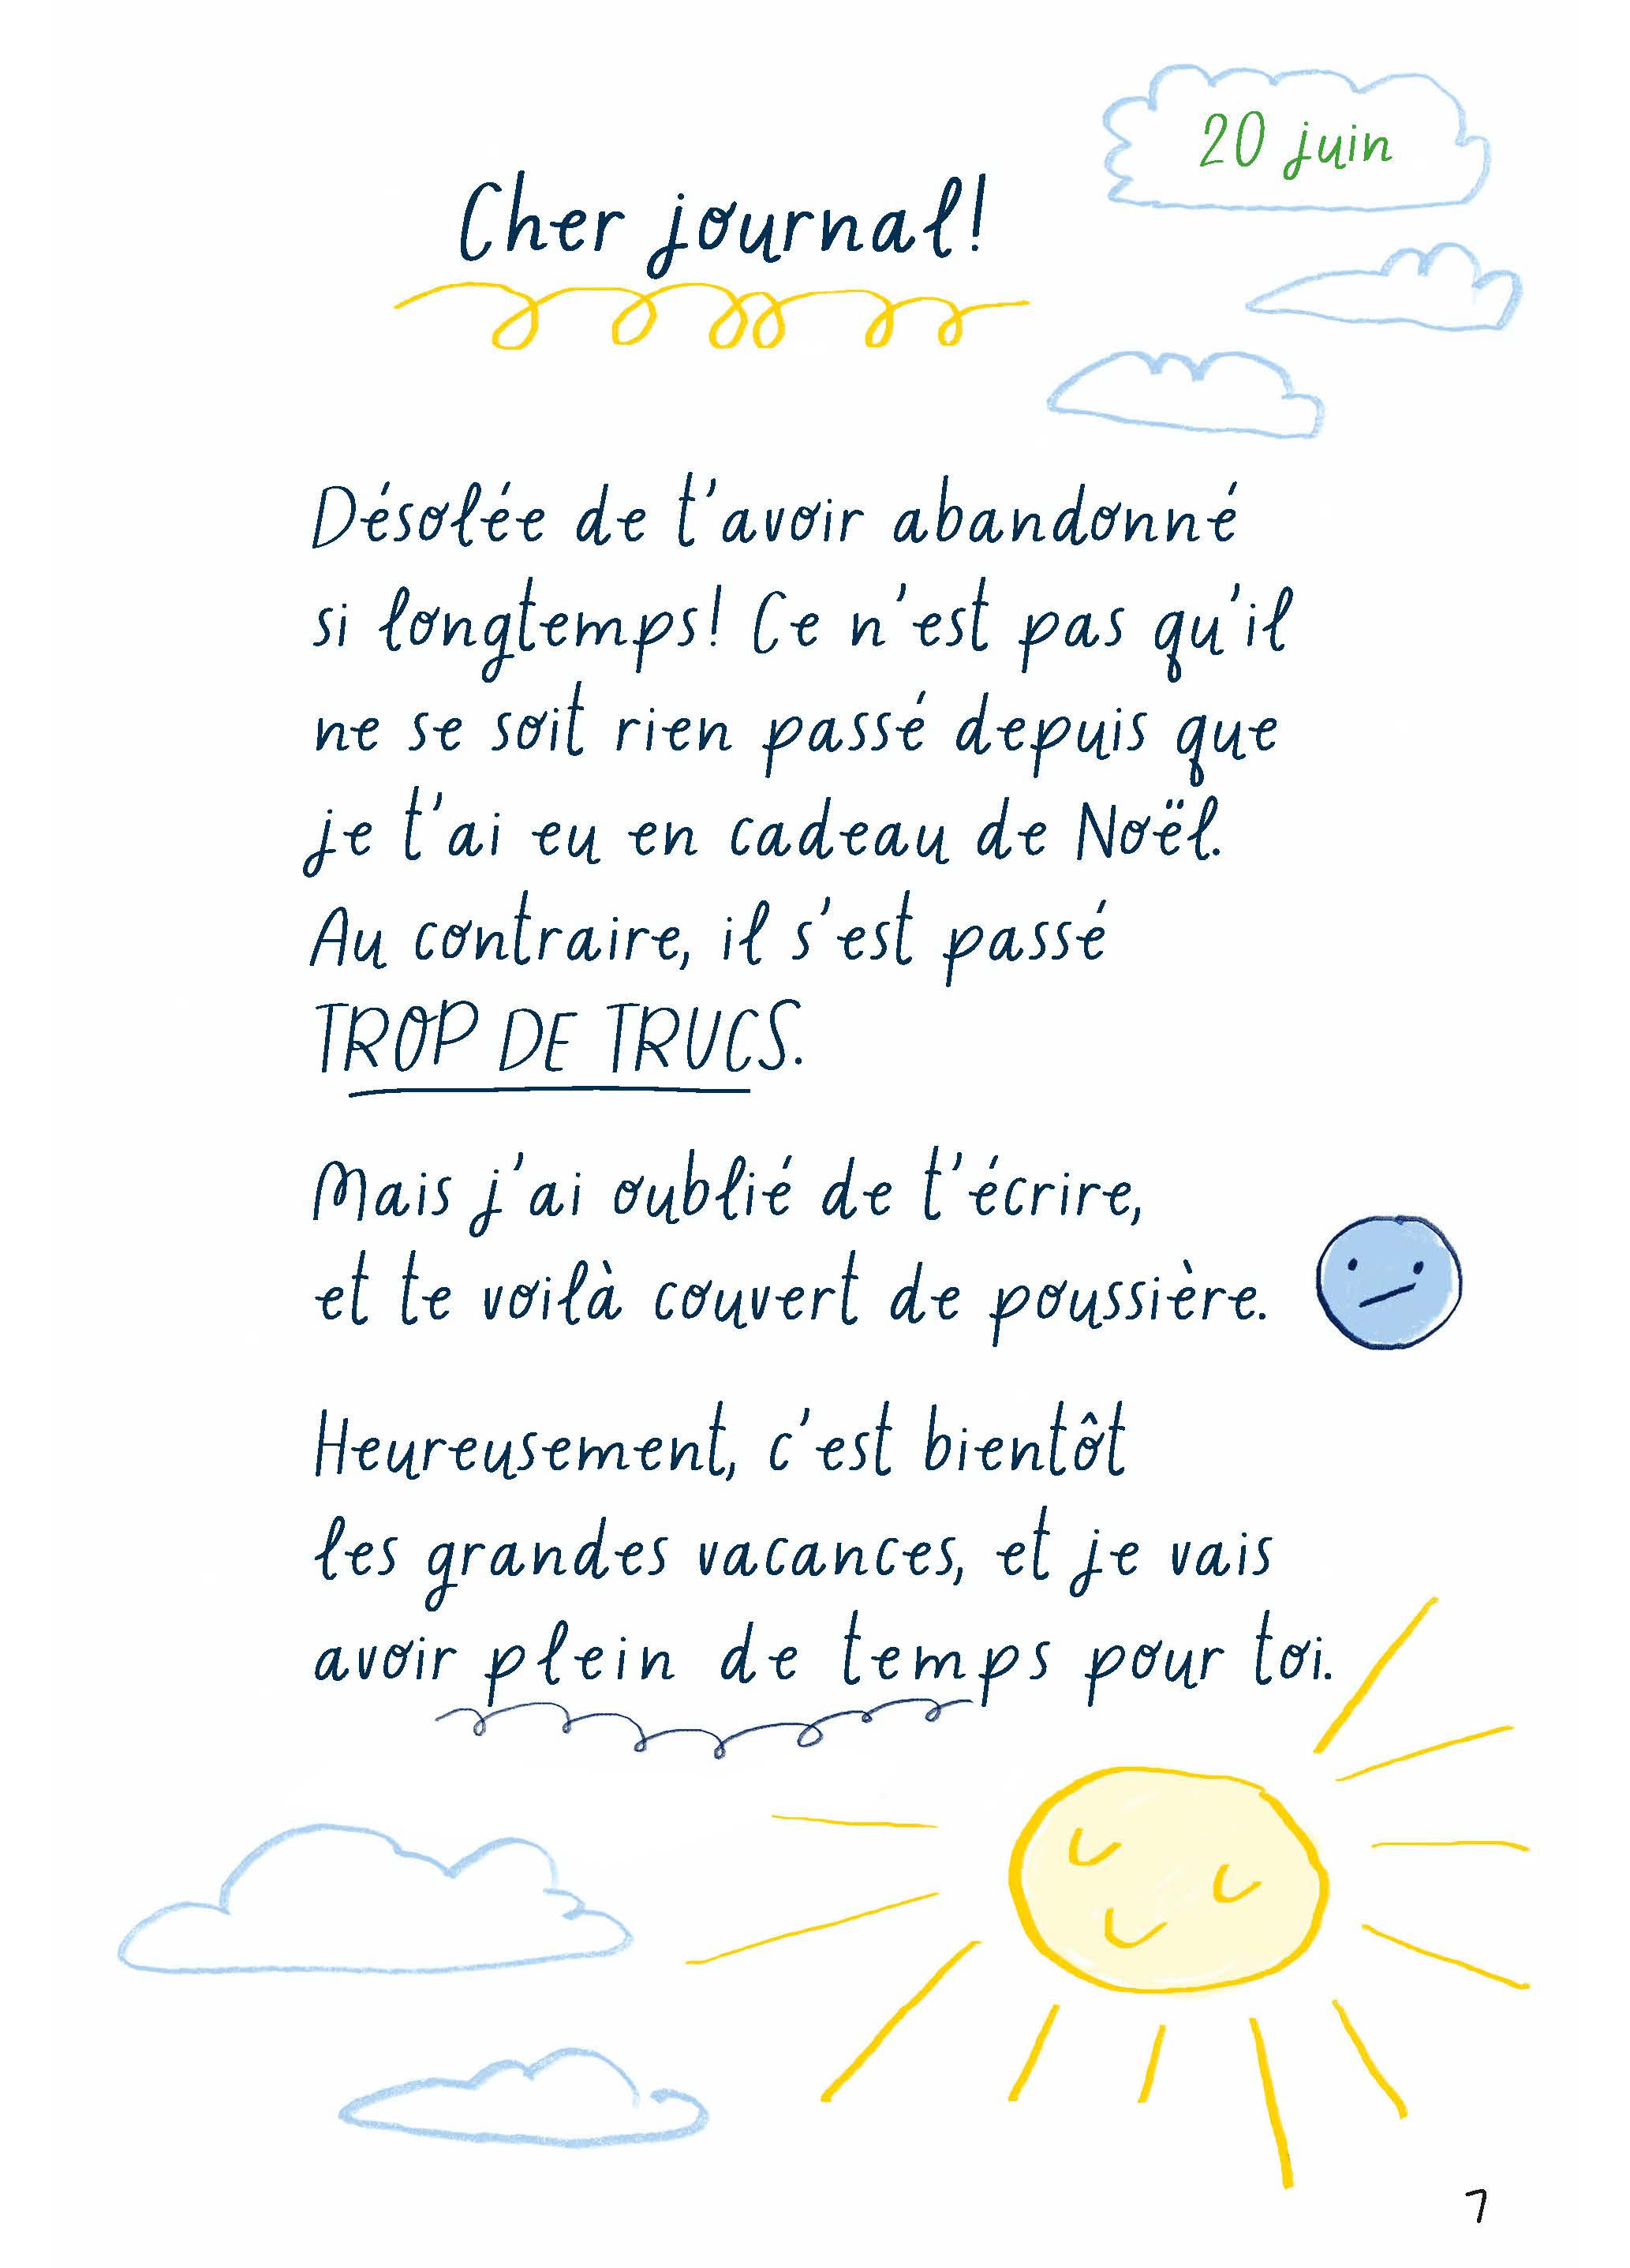 20 juin
Cher journal!
Désolée de t'avoir abandonné
si longtemps! Ce n'est pas qu'il
ne se soit rien passé depuis que
je t'ai eu en cadeau de Noël.
Au contraire, il s'est passé
TROP DE TRUCS.
Mais j'ai oublié de t'écrire,
et te voilà couvert de poussière.
Heureusement, c'est bientôt
les grandes vacances, et je vais
avoir plein de temps pour toi.
7